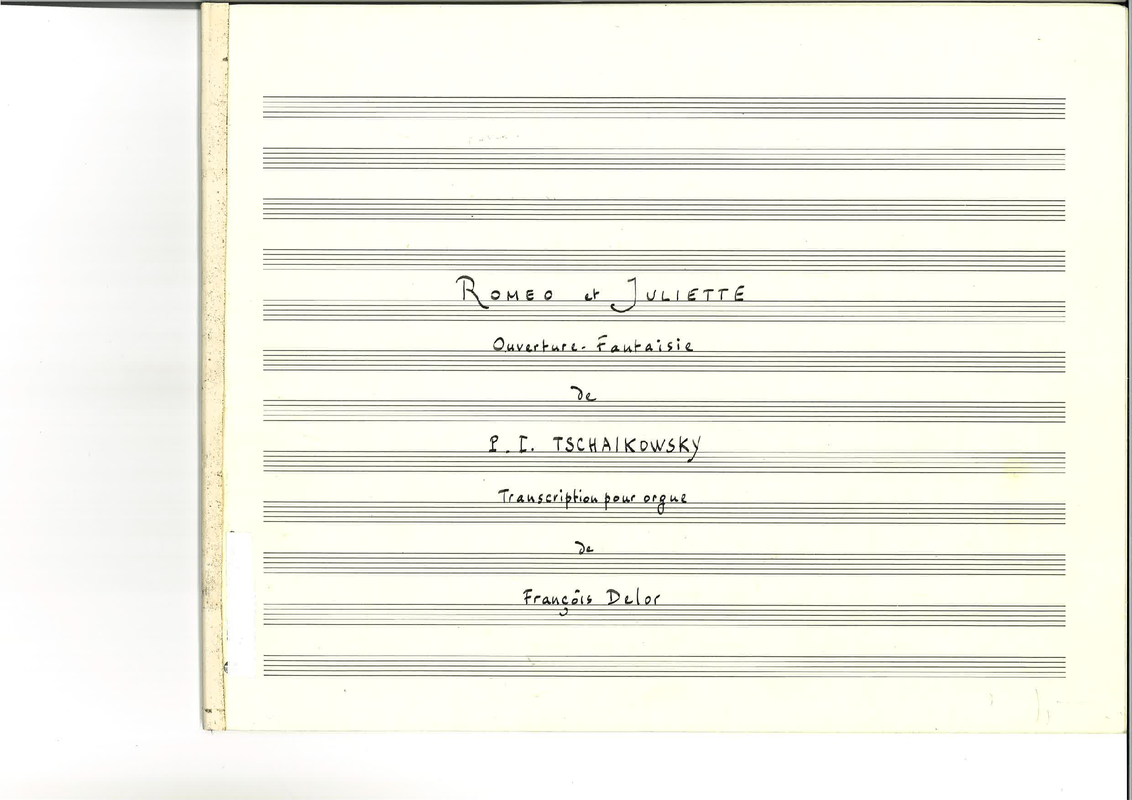 ROMEO et JULIETTE
Ouverture-Fantaisie
de
P. I. TSCHAIKOWSKY
Transcription pour orgue
de
François Delor